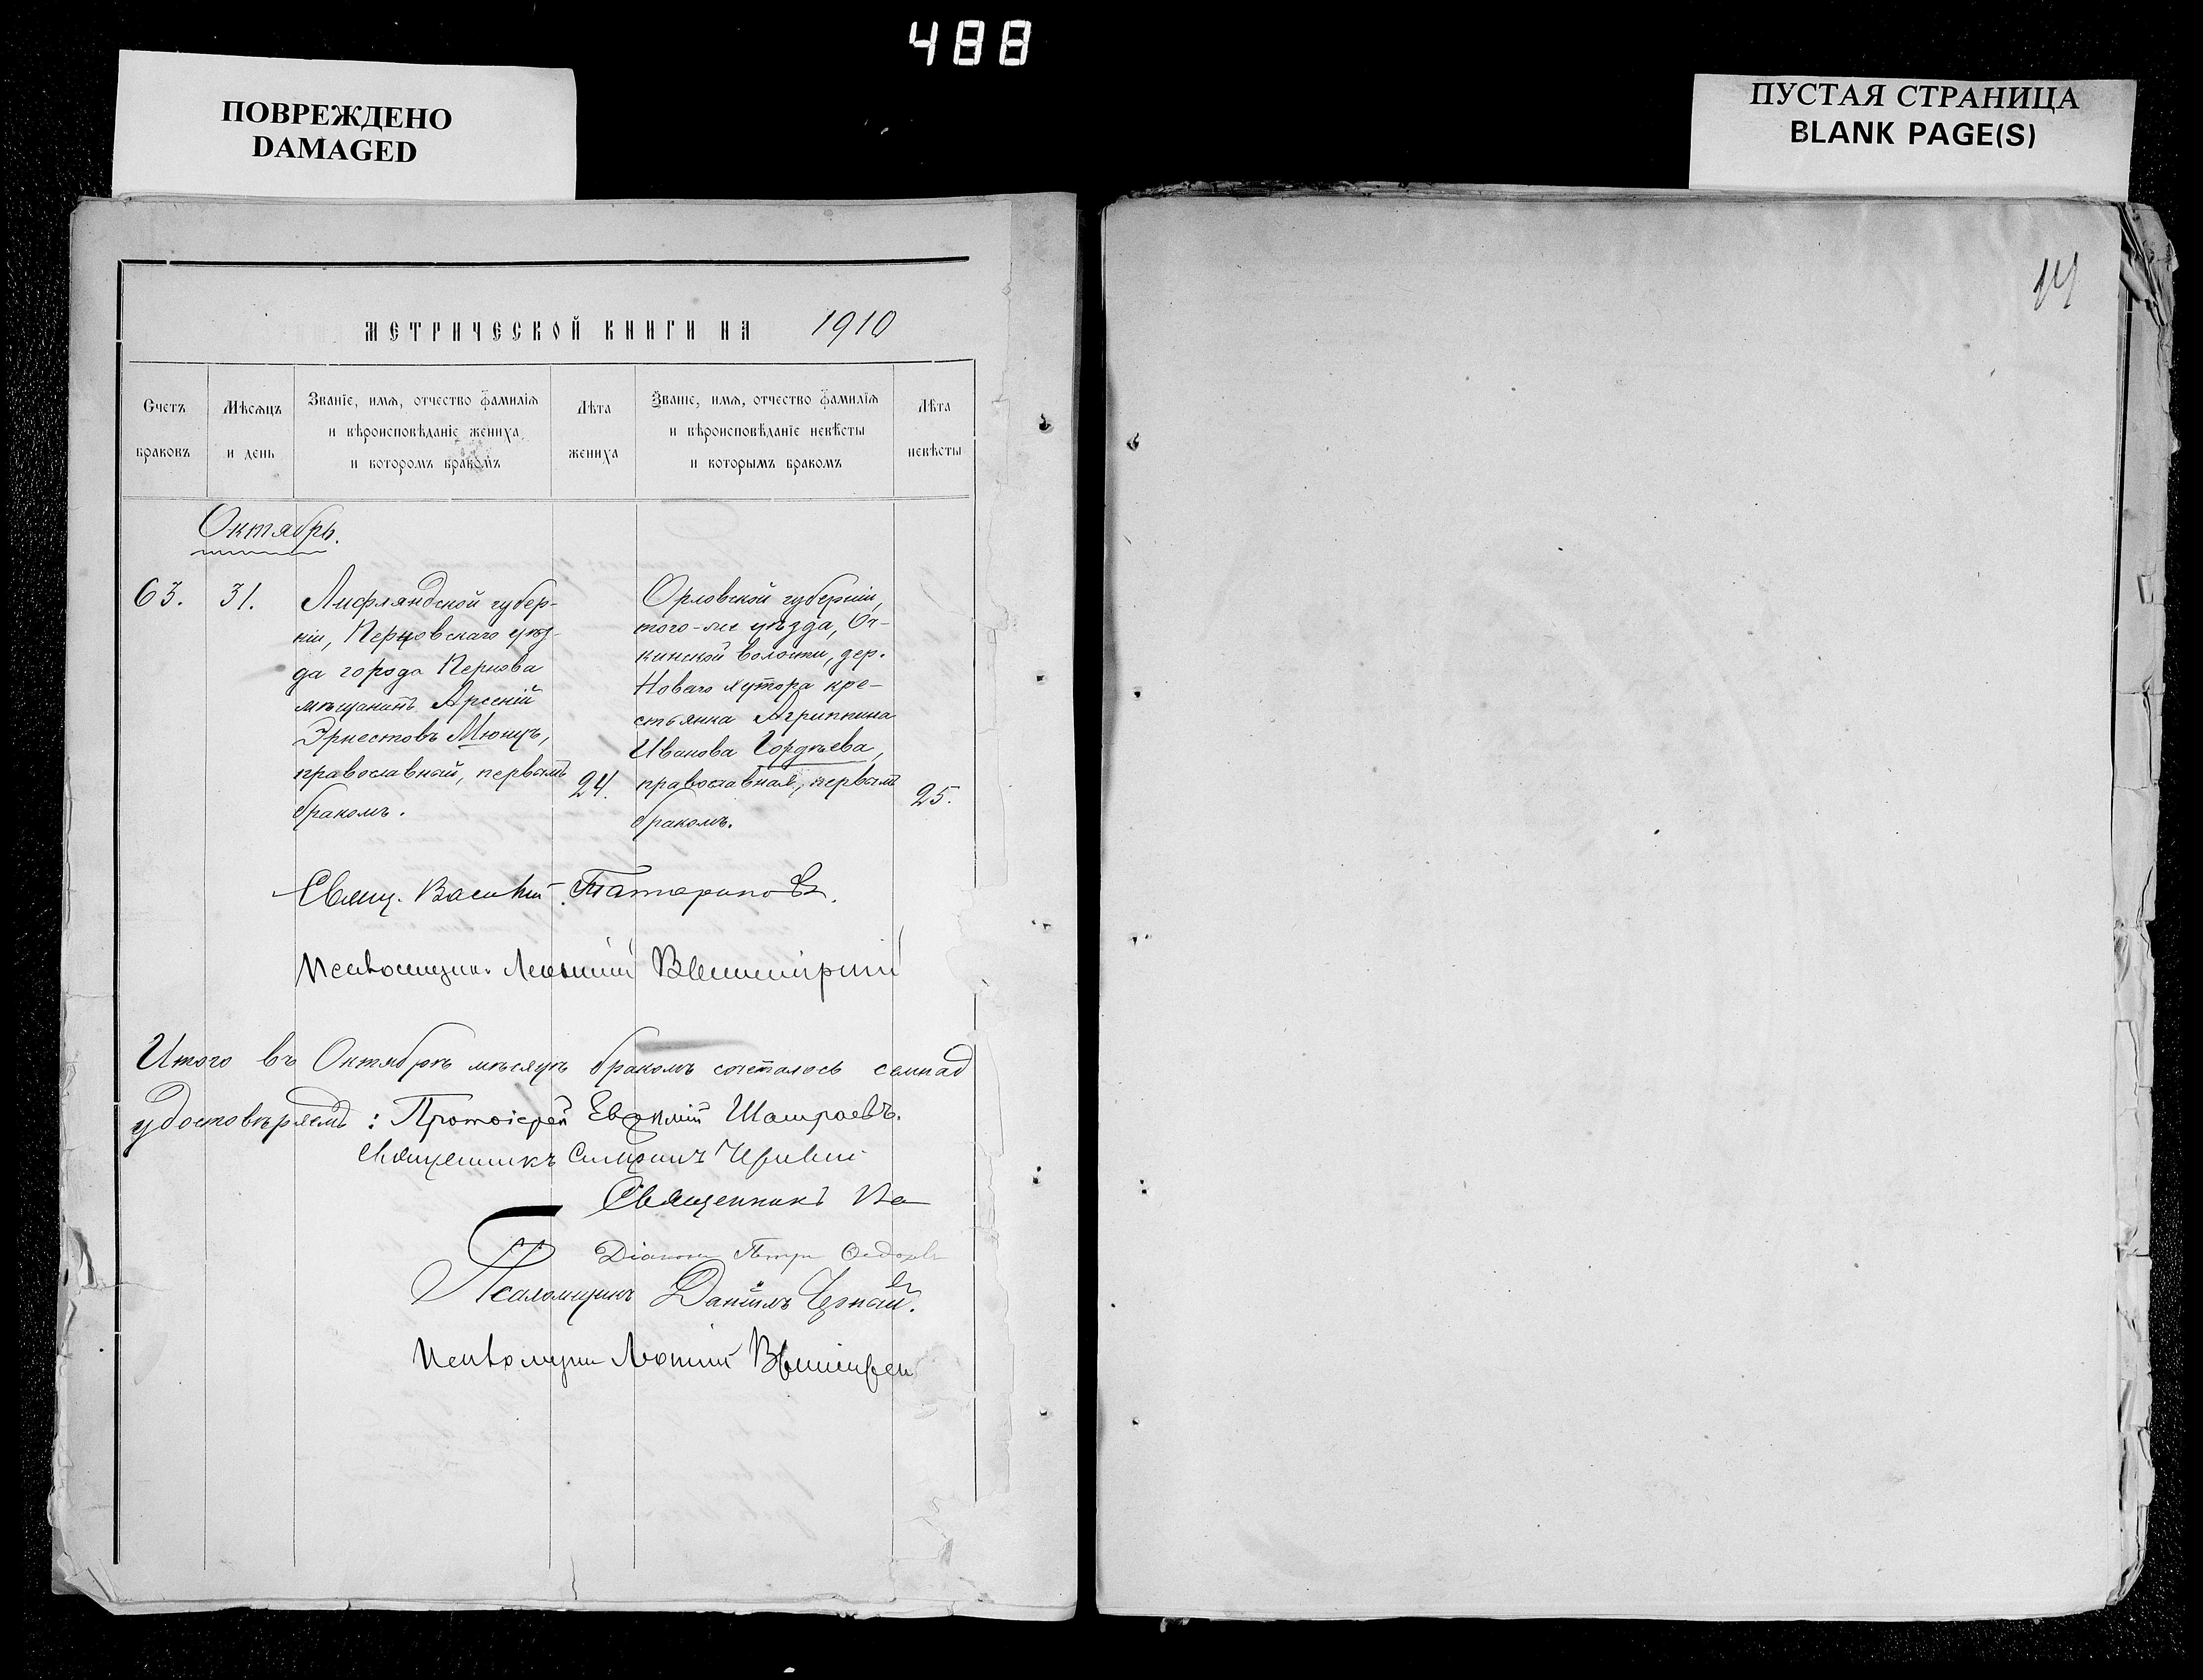 488
ПОВРЕЖДЕНО
DAMAGED
ПУСТАЯ СТРАНИЦА
BLANK PAGE(S)
МЕТРИЧЕСКОЙ КНИГИ НА 1910
Счетъ браковъ
Мѣсяцъ и день
Званіе, имя, отчество фамилія
и вѣроисповѣданіе жениха
и которомъ бракомъ
Лѣта жениха
Званіе, имя, отчество фамилія
и вѣроисповѣданіе невѣсты
и которымъ бракомъ
Лѣта невѣсты
Октябрь.
63. 31.
Лифляндской губер-
ніи, Перновскаго уѣз-
да города Пернова
мѣщанинъ Арсеній
Эрнестовъ Мюнцъ,
православный, первымъ
бракомъ.
24.
Орловской губерніи,
того-же уѣзда,
волости, дер.
Новаго хутора кре-
стьянка Агриппина
Иванова Гордѣева,
православная, первымъ
бракомъ.
25.
Свящ. Василій Татариновъ.
Псаломщикъ
Итого въ Октябрѣ мѣсяцѣ бракомъ сочеталось семнад
удостовѣряемъ: Протоіерей Евфимій
Священникъ
Священникъ
Діаконъ Петръ Ѳедоровъ
Псаломщикъ Даніилъ
Псаломщикъ
14